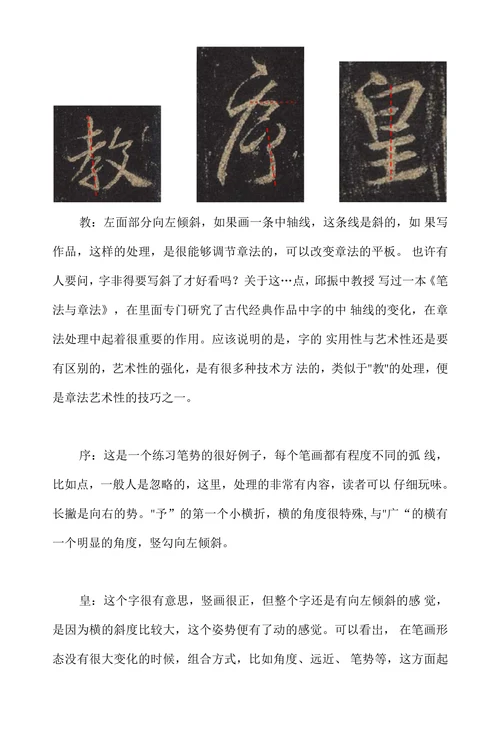 教 序 皇
教：左面部分向左倾斜，如果画一条中轴线，这条线是斜的，如 果写
作品，这样的处理，是很能够调节章法的，可以改变章法的平板。 也许有
人要问，字非得要写斜了才好看吗？关于这…点，邱振中教授 写过一本《笔
法与章法》，在里面专门研究了古代经典作品中字的中 轴线的变化，在章
法处理中起着很重要的作用。应该说明的是，字的 实用性与艺术性还是要
有区别的，艺术性的强化，是有很多种技术方 法的，类似于"教"的处理，便
是章法艺术性的技巧之一。
序：这是一个练习笔势的很好例子，每个笔画都有程度不同的弧 线，
比如点，一般人是忽略的，这里，处理的非常有内容，读者可以 仔细玩味。
长撇是向右的势。"予”的第一个小横折，横的角度很特殊, 与"广“的横有
一个明显的角度，竖勾向左倾斜。
皇：这个字很有意思，竖画很正，但整个字还是有向左倾斜的感 觉，
是因为横的斜度比较大，这个姿势便有了动的感觉。可以看岀， 在笔画形
态没有很大变化的时候，组合方式，比如角度、远近、 笔势等，这方面起